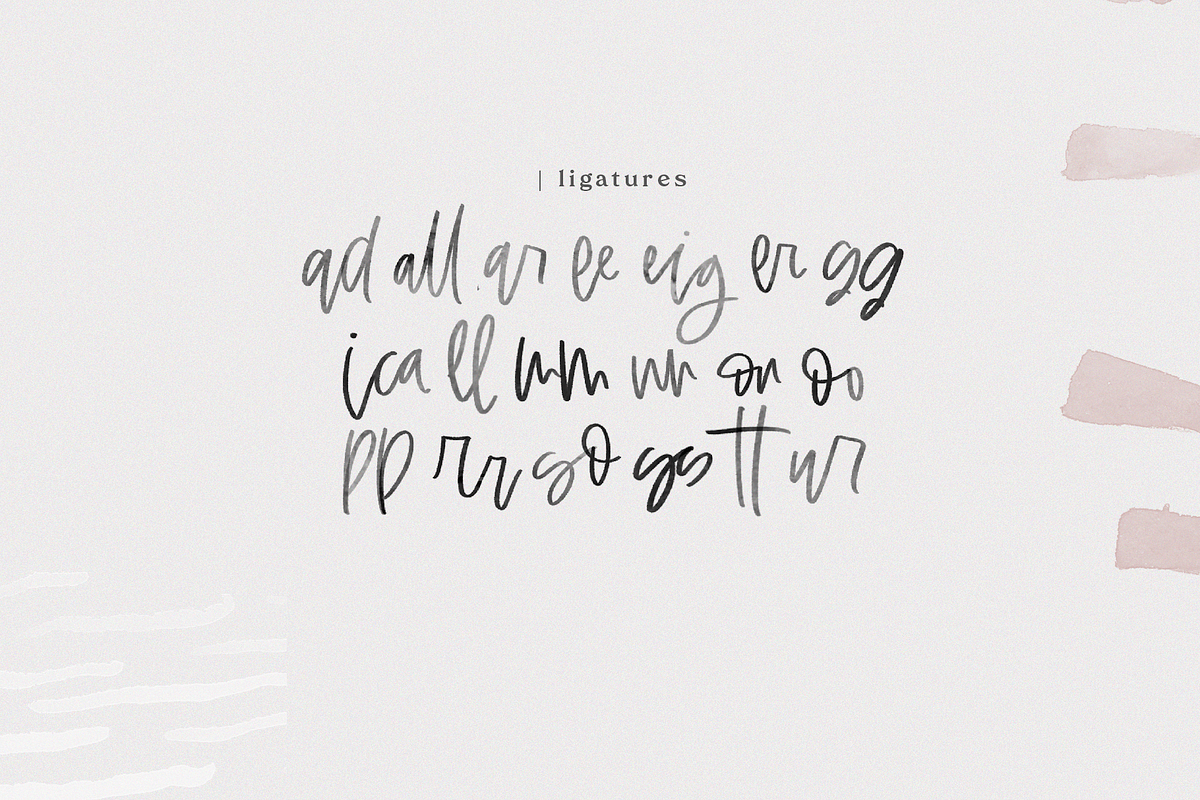 | ligatures
ad all ar ee eig er gg
ica ll mm nn on oo
pp rr so ss tt ur